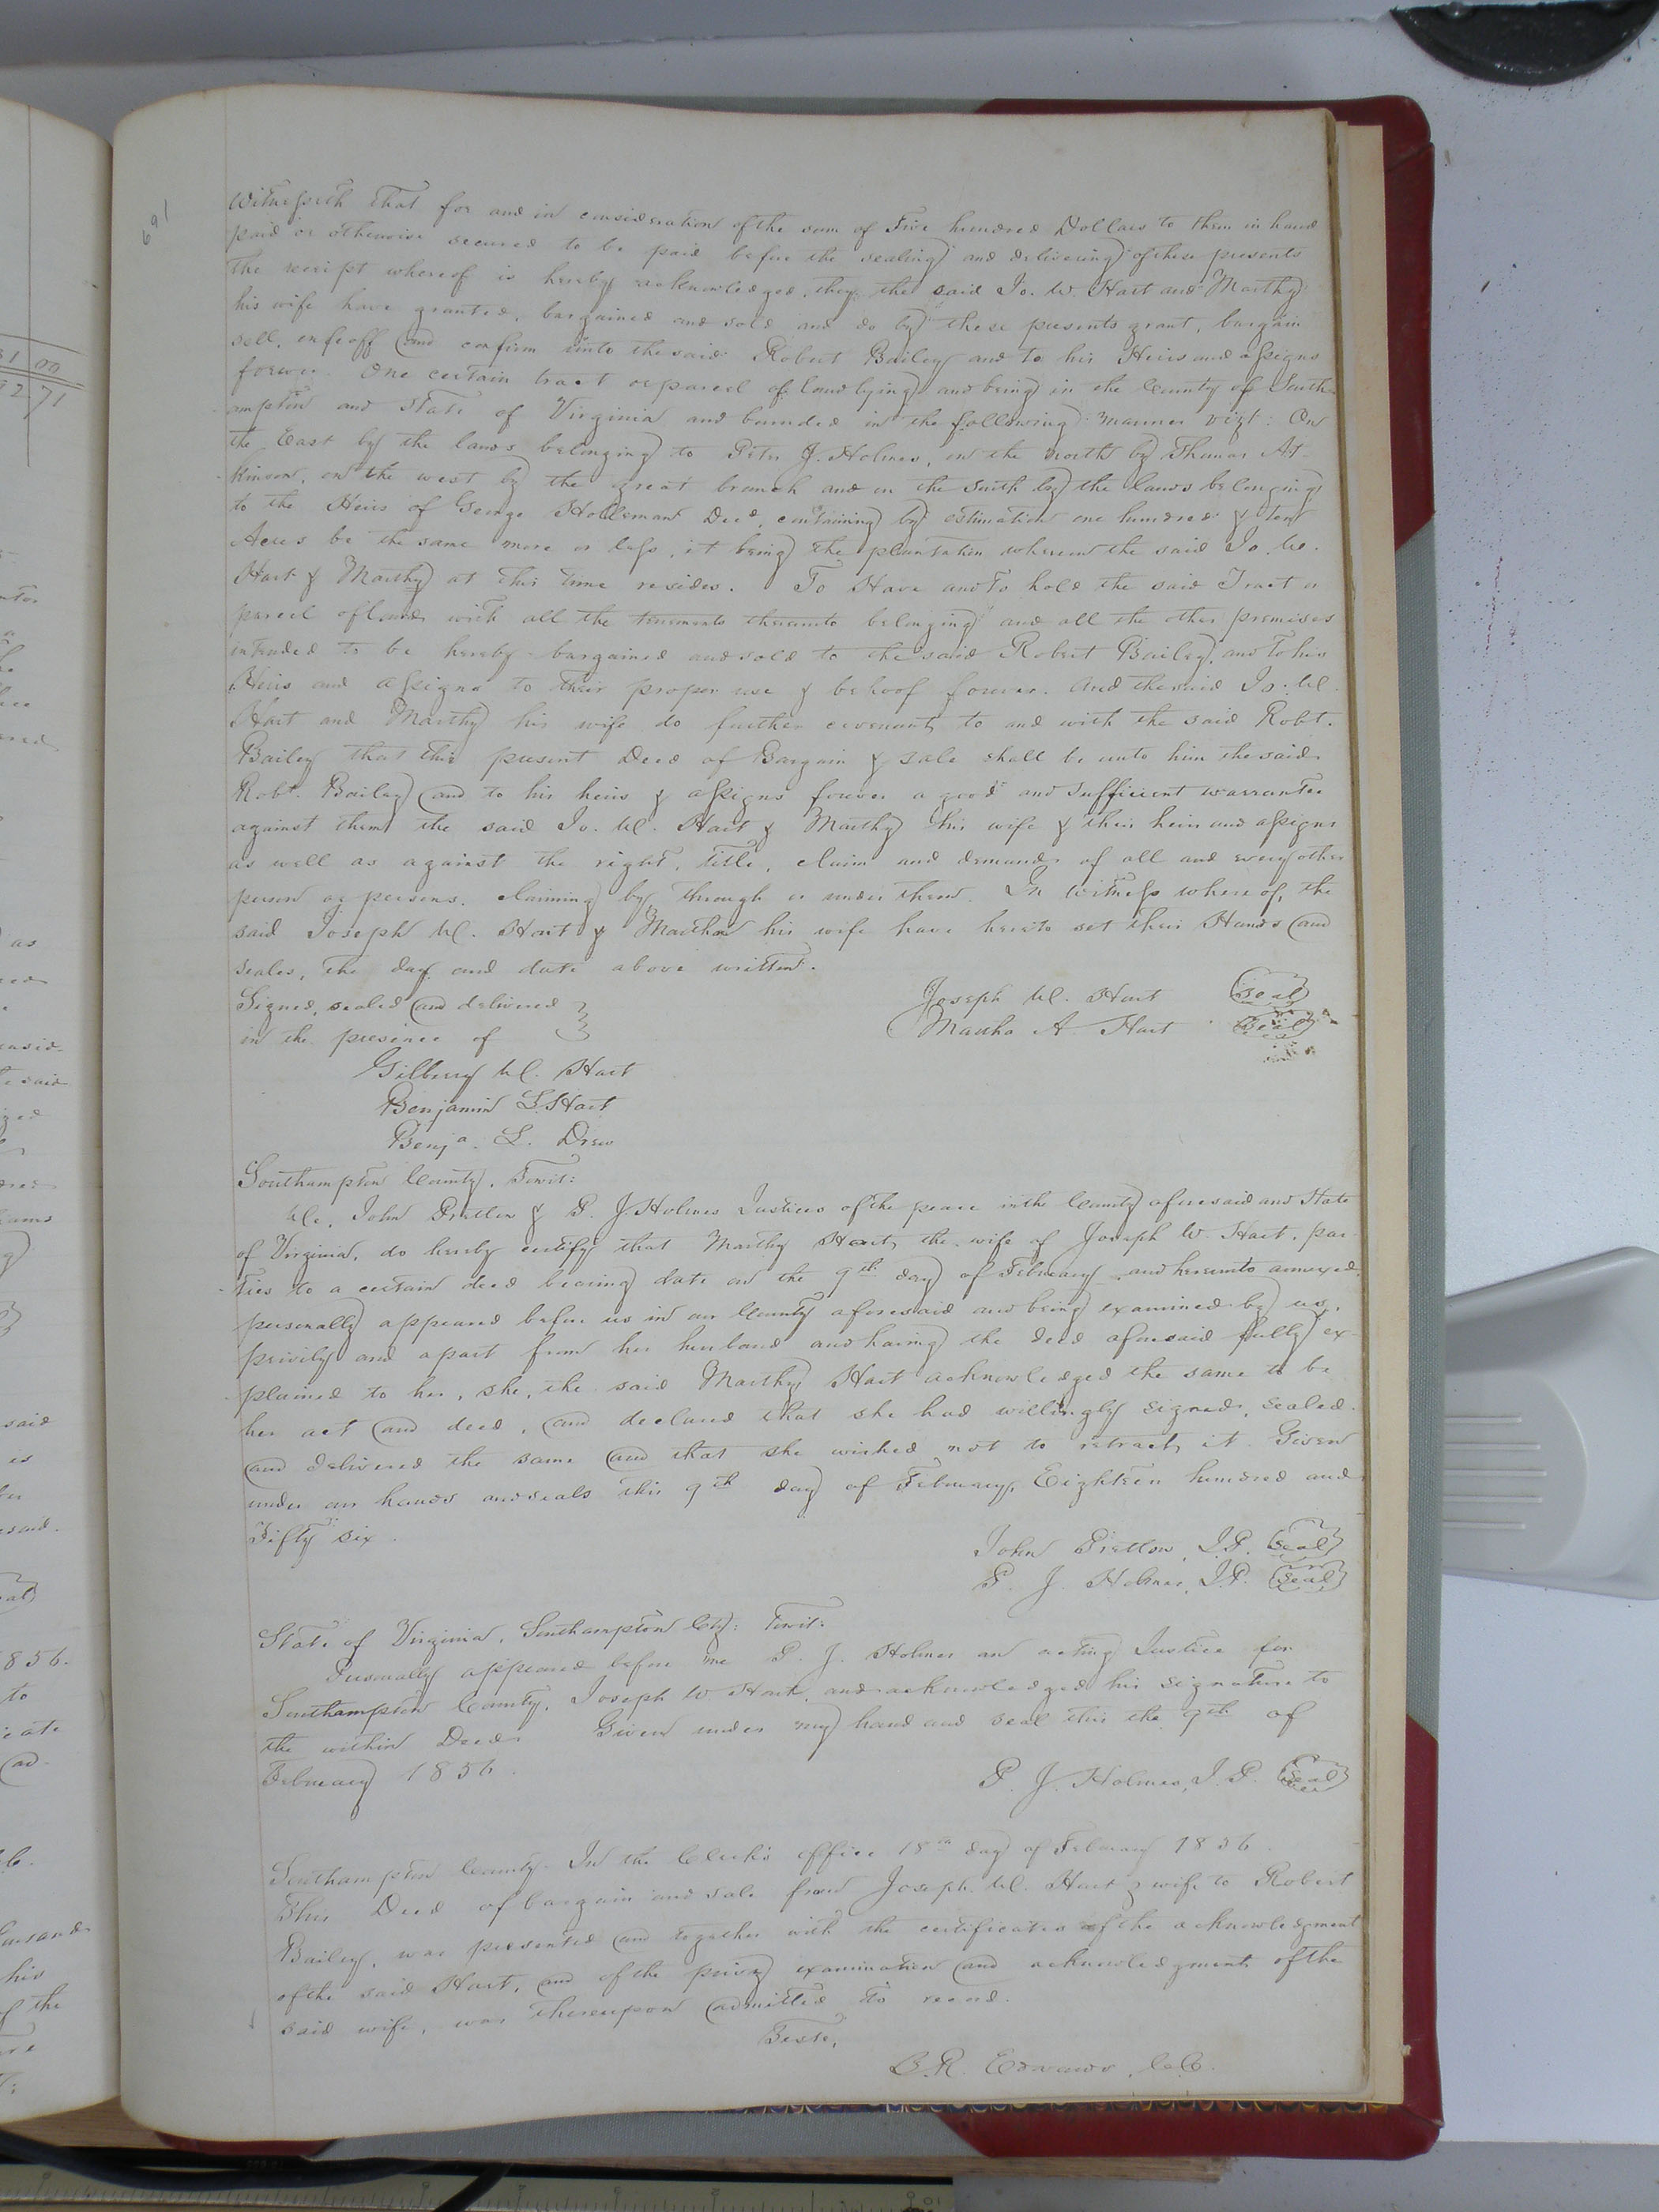 691
Witnesseth that for and in consideration of the sum of Five hundred Dollars to them in hand
paid or otherwise secured to be paid before the sealing and delivering of these presents
the receipt whereof is hereby acknowledged, they the said Jo. W. Hart and Marthy
his wife have granted, bargained and sold and do by these presents grant, bargain
sell, enfeoff and confirm unto the said Robert Bailey and to his Heirs and assigns
forever. One certain tract or parcel of land lying and being in the County of South-
ampton and State of Virginia and bounded in the following manner vizt: On
the East by the lands belonging to Peter J. Holmes, on the north by Thomas At-
kinson, on the west by the great branch and on the South by the lands belonging
to the Heirs of George Holleman Decd, containing by estimation one hundred & ten
Acres be the same more or less, it being the plantation whereon the said Jo. W.
Hart & Marthy at this time resides. To Have and To hold the said Tract or
parcel of Land with all the tenements thereunto belonging and all the other premises
intended to be hereby bargained and sold to the said Robert Bailey, and to his
Heirs and assigns to their proper use & behoof forever. And the said Jo. W.
Hart and Marthy his wife do further covenant to and with the said Robt.
Bailey that this present Deed of Bargain & Sale shall be unto him the said
Robt. Bailey and to his heirs & assigns forever a good and sufficient warrantee
against them the said Jo. W. Hart & Marthy his wife & their heirs and assigns
as well as against the right, title, claim and demands of all and every other
person or persons, claiming by, through or under them. In witness whereof, the
said Joseph W. Hart & Martha his wife have hereto set their Hands and
seales, the day and date above written.
Signed, sealed and delivered Joseph W. Hart Seal
in the presence of Martha A Hart Seal
Gilberry W. Hart
Benjamin L. Hart
Benja. L. Drew
Southampton County, Towit:
We, John Pretlow & P. J. Holmes Justices of the peace in the County aforesaid and State
of Virginia, do hereby certify that Marthy Hart, the wife of Joseph W. Hart, par-
ties to a certain deed bearing date on the 9th day of February and hereunto annexed
personally appeared before us in our County aforesaid and being examined by us,
privily and apart from her husband and having the deed aforesaid fully ex-
plained to her, she, the said Marthy Hart acknowledged the same to be
her act and deed, and declared that she had willingly signed, sealed
and delivered the same and that she wished not to retract it. Given
under our hands and seals this 9th day of February, Eighteen hundred and
Fifty six.
John Pretlow, J.P. Seal
P. J. Holmes, J.P. Seal
State of Virginia, Southampton Cty: Towit:
Personally appeared before me P. J. Holmes an acting Justice for
Southampton County, Joseph W. Hart, and acknowledged his signature to
the within Deed. Given under my hand and seal this the 9th of
February 1856.
P. J. Holmes, J.P. Seal
Southampton County. In the Clerk's office 18th day of February 1856.
This Deed of bargain and sale from Joseph W. Hart & wife to Robert
Bailey, was presented and together with the certificates of the acknowledgment
of the said Hart, and of the privy examination and acknowledgment of the
said wife, was thereupon admitted to record.
Teste,
L. R. Edwards, C.C.